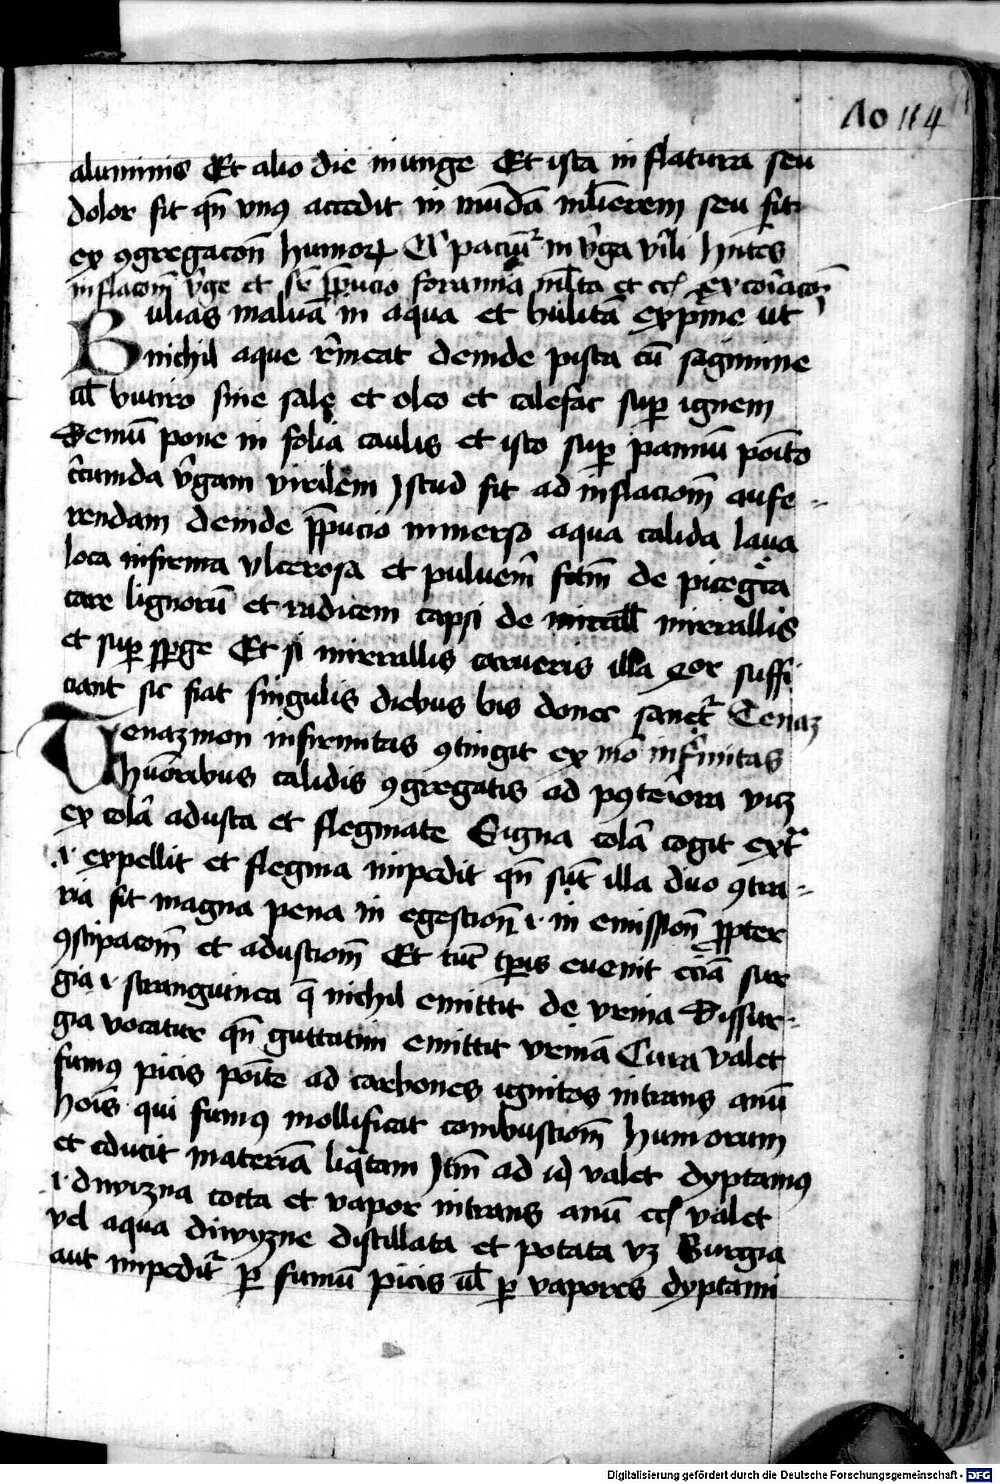 Ao 114
aluminis Et alio die inunge Et ista inflatura seu
dolor fit qn̄ vnꝯ accedit in mūdā ml̄ierem seu fit
ex ꝯgregacon̄ humorꝝ in v̄ga v̄ili hn̄tes
inflacōm v̄ge et p̄pucio foramīa ml̄ta et
Bulias maluā in aqua et bulitā exp̄me ut
nichil aque r̄meat deinde pista cū sagimine
ul̄ butiro sine sale et oleo et calefac suꝑ ignem
Demū pone in folia caulis et isto suꝑ pannū poīto
c̄cumda v̄gam virilem Istud fit ad inflaciōm aufe-
rendam deinde p̄pucio inmerso aqua calida laua
loca infirma vlcerosa et puluem̄ fc̄m de
lignorū et radicem capsi de mirrallis
et suꝑ sꝑge Et si mirrallis carueris illa suffi
ciant sic fiat singulis diebus bis donec sanet᷑ Tenaz
Tenazmon infirmitas ꝯtingit ex infirmitas
hūoribus calidis ꝯgregatis ad posteriora viꝫ
ex colā adusta et flegmate Signa colā cogit ext᷑
.i. expellit et flegma impedit qn̄ sūt illa duo ꝯtra-
ria fit magna pena in egestion̄ .i. in emission̄ ꝓpter
ꝯstipacōm et adustiom̄ Et tūc tp̄is euenit ecīa sur
gia .i. stranguinea q̄ nichil emittit de vrina Dissur-
gia vocatur qn̄ guttatim emittit vrinā Cura valet
fumꝯ picis poīte ad carbones ignitos intrans anū
hoīs qui fumꝯ mollificat combustiom̄ humorum
et educit materiā liq̄tam Itm̄ ad id valet dyptamꝯ
.i. cocta et vapor intrans anū valet
vel aqua distillata et potata vꝫ Surgia
aut impedit᷑ ꝑ fumū picis ul̄ ꝑ vapores dyptami
Digitalisierung gefördert durch die Deutsche Forschungsgemeinschaft - DFG